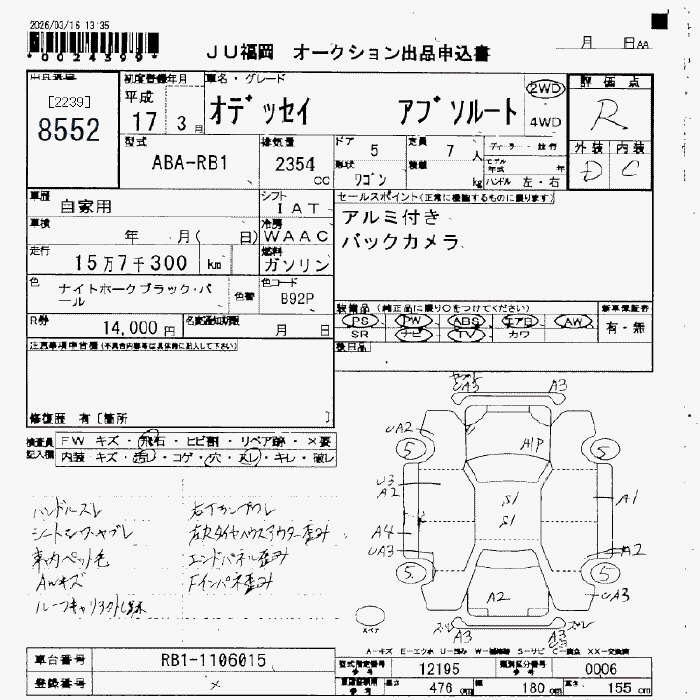 2026/03/16 13:35
*00243994*
JU福岡 オークション出品申込書
月 日AA
[2239]
8552
初度登録年月
平成
17 3月
車名・グレード
オデッセイ アブソルート
2WD
4WD
評価点
R
外装 内装
D C
型式
ABA-RB1
排気量
2354
cc
ドア
5
定員
7 人
形状
ワゴン
積載
kg
ディーラー・並行
モデル年式 年
ハンドル 左・右
車歴
自家用
シフト
IAT
セールスポイント(正常に機能するものに限ります)
アルミ付き
バックカメラ
車検
年 月( 日)
冷房
WAAC
走行
15万7千300 km
燃料
ガソリン
色
ナイトホークブラック・パール
色替
色コード
B92P
装備品 (純正品に限り○をつけてください)
PS PW ABS エアB AW
SR ナビ TV カワ
新車保証書
有・無
R券
14,000 円
名変通知期限
月 日
後日品
注意事項申告欄(不具合内容等は具体的に記入して下さい)
修復歴 有[箇所 ]
検査員記入欄
FW キズ・飛石・ヒビ割・リペア跡・×要
内装 キズ・汚レ・コゲ・穴・スレ・キレ・破レ
ハンドルスレ
シートシワ・ヤブレ
車内ペット毛
AWキズ
A3
A3
UA2
A1P
5
5
U3
A2
S1
S1
A1
A4
UA3
A2
5
5
A2
UA3
A3
A3
スペア
A-キズ E-エクボ U-凹み W-補修跡 S-サビ C-腐食 XX-交換済
車台番号
RB1-1106015
登録番号
型式指定番号
12195
類別区分番号
0006
長さ 476 cm
幅 180 cm
高さ 155 cm